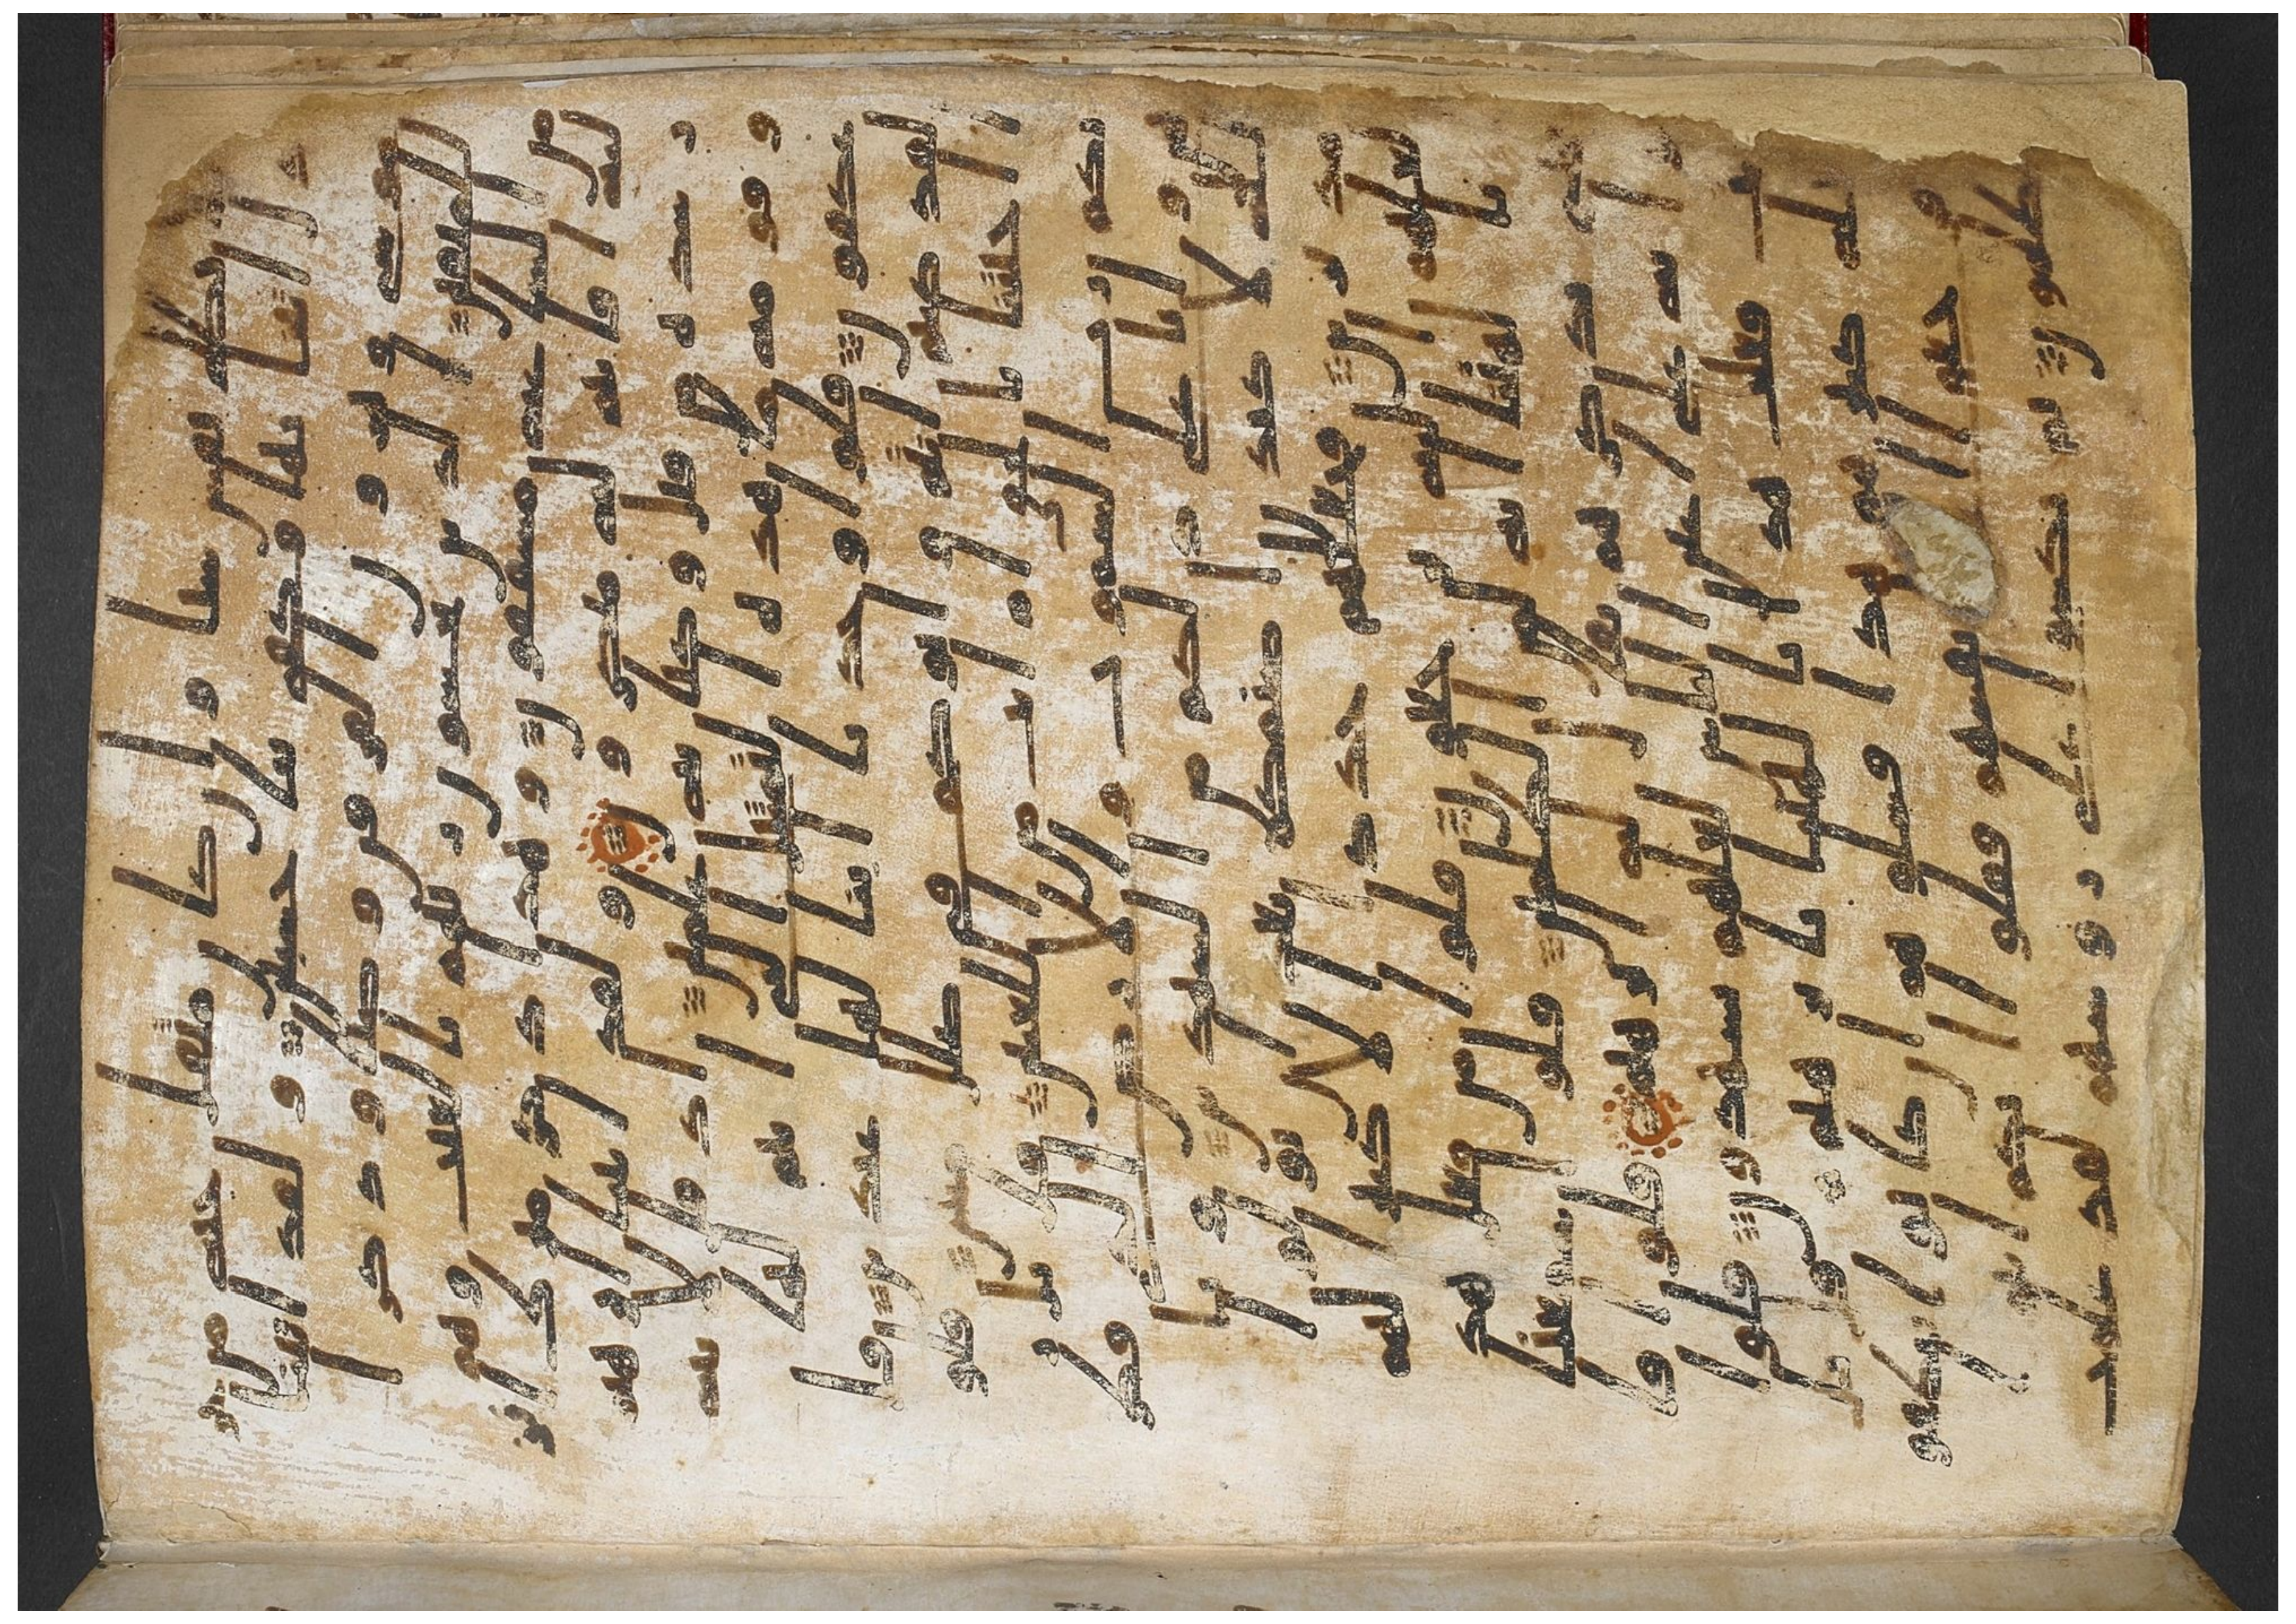 فلا تظلم نفس شيا وان كان مثقال حبة من خر
دل اتينا بها وكفى بنا حسبين ولقد اتينا
موسى وهرون الفرقن وضيا وذكرا
للمتقين الذين يخشون ربهم بالغيب وهم
من الساعة مشفقون وهذا ذكر مبرك انز
لنه افانتم له منكرون ولقد اتينا ابرهيم
رشده من قبل وكنا به علمين اذ قال لابيه
وقومه ما هذه التماثيل التي انتم لها
عكفون قالوا وجدنا ابانا لها عبدين قا
ل لقد كنتم انتم واباوكم في ضلل مبين قلو
ا اجئتنا بالحق ام انت من اللعبين قال بل ر
بكم رب السموت والارض الذي فطر
هن وانا على ذلكم من الشهدين وتا
لله لاكيدن اصنمكم بعد ان تولوا
مدبرين فجعلهم جذذا الا كبيرا لهم
لعلهم اليه يرجعون قلوا من فعل هذا
بالهتنا انه لمن الظلمين قلوا سمعنا
فتى يذكرهم يقل له ابرهيم قلوا فا
توا به على اعين الناس لعلهم يشهدون قلوا
انت فعلت هذا بالهتنا يابرهيم قل
بل فعله كبيرهم هذا فسلوهم ان كانوا ينطقو
ن فرجعوا الى انفسهم فقلوا انكم انتم
الظلمون ثم نكسوا على روسهم لقد علمت